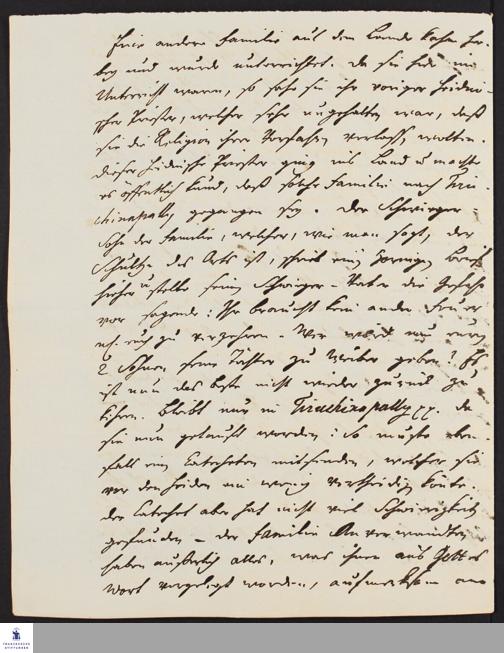 Eine andere Familie aus dem Lande kahm her-
bey und wurde unterrichtet. Da sie hier im
Unterricht waren, so sahe sie ihr voriger heidni-
scher Priester, welcher sehr ungehalten war, daß
sie die Religion ihrer Vorfahren verlassen wolten.
Dieser heidnische Priester ging ins Land u machte
es öffentlich kund, daß solche Familie nach Tiru-
chinapally gegangen sey. Der Schwieger-
Sohn der Familie, welcher, wie man sagt, der
Schultze des Orts ist, schrieb einen Brief
hieher u stellte seinem Schwieger-Vater die Gefahr
vor sagende: Ihr braucht kein ander Feuer
euch zu verzehren. Wer wird nun euren
2 Söhnen seine Töchter zu Weiber geben? Es
ist nun das beste nicht wieder zurück zu
kehren. Bleibt nur in Tiruchinapally pp. Da
sie nun getauft worden: so muste eben-
fals ein Catecheten mitsenden, welcher sie
vor den Heiden ein wenig vertheidigen könte.
Der Catechet aber hat nicht viel Schwierigkeit
gefunden – der Familie Anverwandten
haben äußerlich alles, was ihnen aus Gottes
Wort vorgelegt worden, aufmerksam an-
FRANCKESCHE
STIFTUNGEN